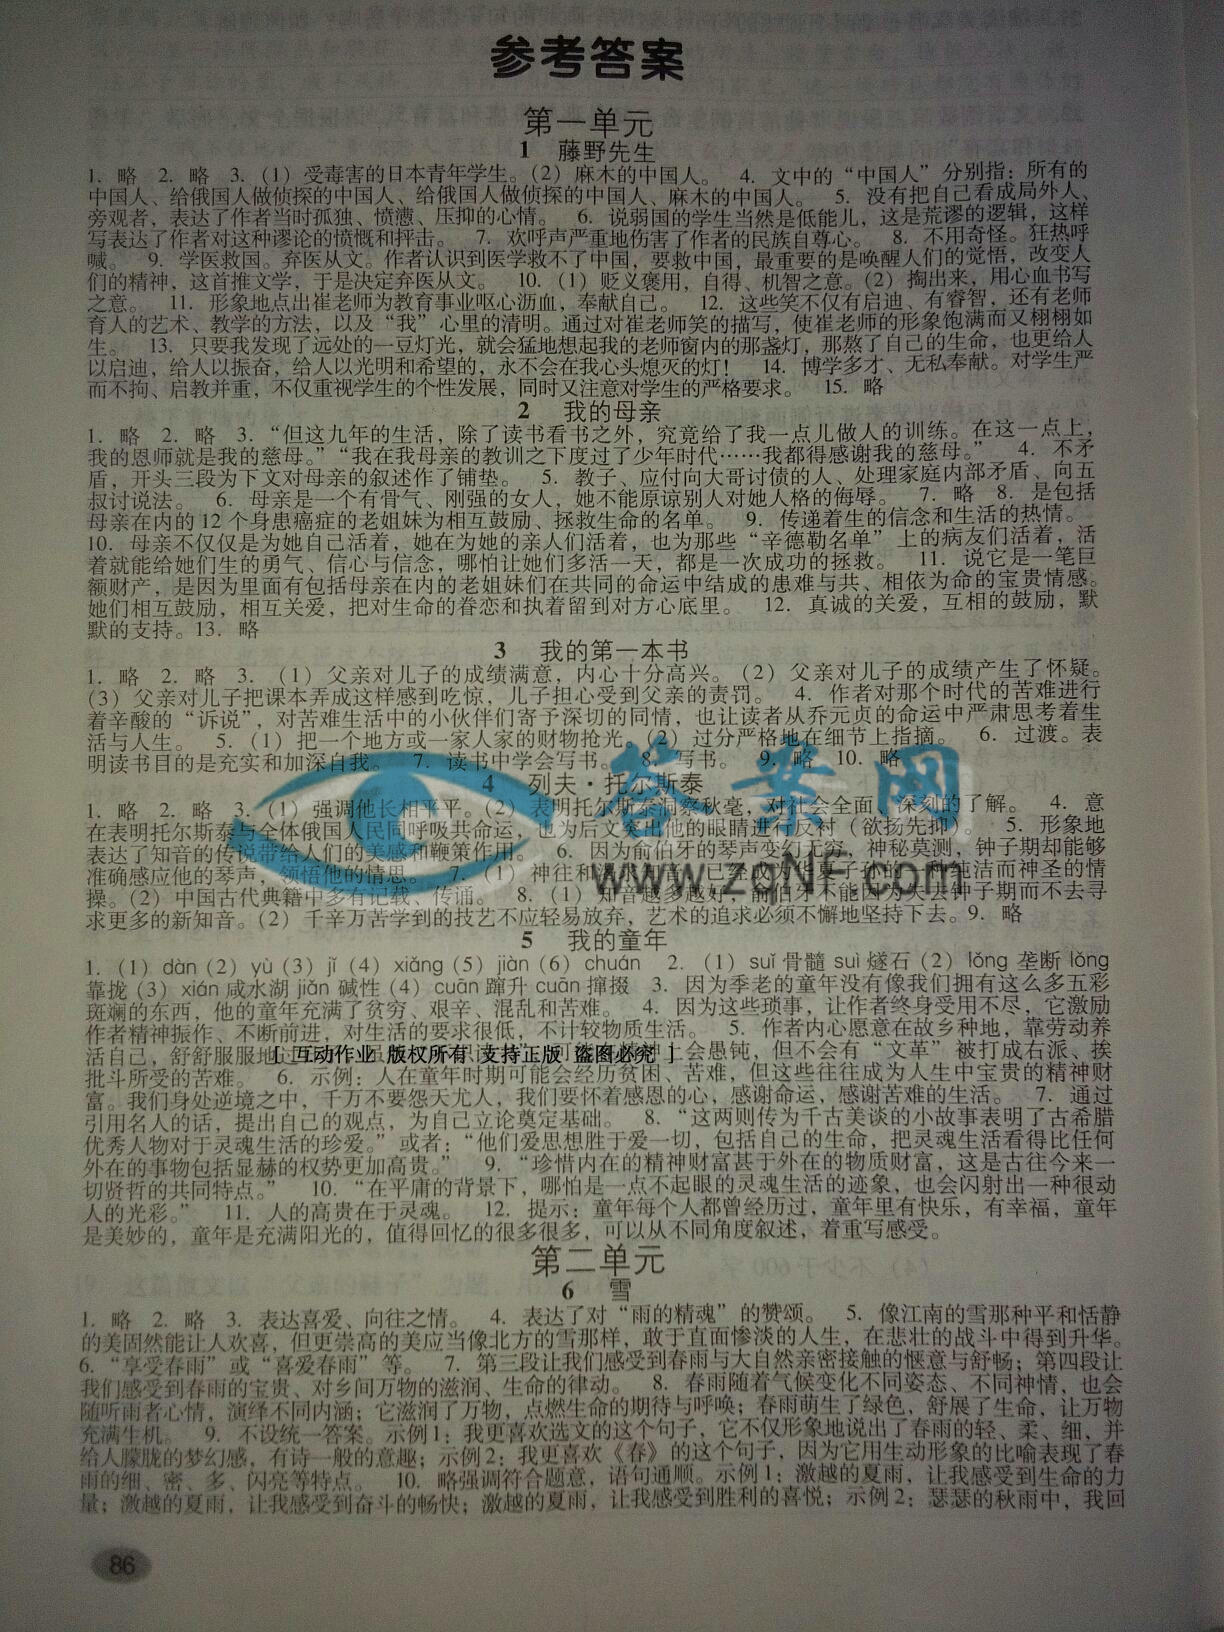 参考答案
第一单元
1 藤野先生
1. 略 2. 略 3. (1) 受毒害的日本青年学生。(2) 麻木的中国人。 4. 文中的“中国人”分别指：所有的
中国人、给俄国人做侦探的中国人、给俄国人做侦探的中国人、麻木的中国人。 5. 没有把自己看成局外人、
旁观者，表达了作者当时孤独、愤懑、压抑的心情。 6. 说弱国的学生当然是低能儿，这是荒谬的逻辑，这样
写表达了作者对这种谬论的愤慨和抨击。 7. 欢呼声严重地伤害了作者的民族自尊心。 8. 不用奇怪。狂热呼
喊。 9. 学医救国。弃医从文。作者认识到医学救不了中国，要救中国，最重要的是唤醒人们的觉悟，改变人
们的精神，这首推文学，于是决定弃医从文。 10. (1) 贬义褒用，自得、机智之意。(2) 掏出来，用心血书写
之意。 11. 形象地点出崔老师为教育事业呕心沥血，奉献自己。 12. 这些笑不仅有启迪、有睿智，还有老师
育人的艺术、教学的方法，以及“我”心里的清明。通过对崔老师笑的描写，使崔老师的形象饱满而又栩栩如
生。 13. 只要我发现了远处的一豆灯光，就会猛地想起我的老师窗内的那盏灯，那熬了自己的生命，也更给人
以启迪，给人以振奋，给人以光明和希望的，永不会在我心头熄灭的灯！ 14. 博学多才、无私奉献。对学生严
而不拘、启教并重，不仅重视学生的个性发展，同时又注意对学生的严格要求。 15. 略
2 我的母亲
1. 略 2. 略 3. “但这九年的生活，除了读书看书之外，究竟给了我一点儿做人的训练。在这一点上，
我的恩师就是我的慈母。”“我在我母亲的教训之下度过了少年时代……我都得感谢我的慈母。” 4. 不矛
盾，开头三段为下文对母亲的叙述作了铺垫。 5. 教子、应付向大哥讨债的人、处理家庭内部矛盾、向五
叔讨说法。 6. 母亲是一个有骨气、刚强的女人，她不能原谅别人对她人格的侮辱。 7. 略 8. 是包括
母亲在内的 12 个身患癌症的老姐妹为相互鼓励、拯救生命的名单。 9. 传递着生的信念和生活的热情。
10. 母亲不仅仅是为她自己活着，她在为她的亲人们活着，也为那些“辛德勒名单”上的病友们活着，活
着就能给她们生的勇气、信心与信念，哪怕让她们多活一天，都是一次成功的拯救。 11. 说它是一笔巨
额财产，是因为里面有包括母亲在内的老姐妹们在共同的命运中结成的患难与共、相依为命的宝贵情感。
她们相互鼓励，相互关爱，把对生命的眷恋和执着留到对方心底里。 12. 真诚的关爱，互相的鼓励，默
默的支持。13. 略
3 我的第一本书
1. 略 2. 略 3. (1) 父亲对儿子的成绩满意，内心十分高兴。(2) 父亲对儿子的成绩产生了怀疑。
(3) 父亲对儿子把课本弄成这样感到吃惊，儿子担心受到父亲的责罚。 4. 作者对那个时代的苦难进行
着辛酸的“诉说”，对苦难生活中的小伙伴们寄予深切的同情，也让读者从乔元贞的命运中严肃思考着生
活与人生。 5. (1) 把一个地方或一家人家的财物抢光。(2) 过分严格地在细节上指摘。 6. 过渡。表
明读书目的是充实和加深自我。 7. 读书中学会写书。 8. 写书。 9. 略 10. 略
4 列夫·托尔斯泰
1. 略 2. 略 3. (1) 强调他长相平平。(2) 表明托尔斯泰洞察秋毫，对社会全面、深刻的了解。 4. 意
在表明托尔斯泰与全体俄国人民同呼吸共命运，也为后文突出他的眼睛进行反衬（欲扬先抑）。 5. 形象地
表达了知音的传说带给人们的美感和鞭策作用。 6. 因为俞伯牙的琴声变幻无穷，神秘莫测，钟子期却能够
准确感应他的琴声，领悟他的情思。 7. (1) 神往和 已经成为 夏子孙的 纯洁而神圣的情
操。(2) 中国古代典籍中多有记载、传诵。 8. (1) 知音越多越好，俞伯牙不能因为失去钟子期而不去寻
求更多的新知音。(2) 千辛万苦学到的技艺不应轻易放弃，艺术的追求必须不懈地坚持下去。9. 略
答案网
www.zqNF.com
5 我的童年
1. (1) dàn (2) yù (3) jǐ (4) xiǎng (5) jiàn (6) chuán 2. (1) suǐ 骨髓 suì 燧石 (2) lǒng 垄断 lǒng
靠拢 (3) xián 咸水湖 jiǎn 碱性 (4) cuān 蹿升 cuān 撺掇 3. 因为季老的童年没有像我们拥有这么多五彩
斑斓的东西，他的童年充满了贫穷、艰辛、混乱和苦难。 4. 因为这些琐事，让作者终身受用不尽，它激励
作者精神振作、不断前进，对生活的要求很低，不计较物质生活。 5. 作者内心愿意在故乡种地，靠劳动养
活自己，舒舒服服地过 上会愚钝，但不会有“文革”被打成右派、挨
[ 互动作业 版权所有 支持正版 盗图必究 ]
批斗所受的苦难。 6. 示例：人在童年时期可能会经历贫困、苦难，但这些往往成为人生中宝贵的精神财
富。我们身处逆境之中，千万不要怨天尤人，我们要怀着感恩的心，感谢命运，感谢苦难的生活。 7. 通过
引用名人的话，提出自己的观点，为自己立论奠定基础。 8. “这两则传为千古美谈的小故事表明了古希腊
优秀人物对于灵魂生活的珍爱。”或者：“他们爱思想胜于爱一切，包括自己的生命，把灵魂生活看得比任何
外在的事物包括显赫的权势更加高贵。” 9. “珍惜内在的精神财富甚于外在的物质财富，这是古往今来一
切贤哲的共同特点。” 10. “在平庸的背景下，哪怕是一点不起眼的灵魂生活的迹象，也会闪射出一种很动
人的光彩。” 11. 人的高贵在于灵魂。 12. 提示：童年每个人都曾经历过，童年里有快乐，有幸福，童年
是美妙的，童年是充满阳光的，值得回忆的很多很多，可以从不同角度叙述，着重写感受。
第二单元
6 雪
1. 略 2. 略 3. 表达喜爱、向往之情。 4. 表达了对“雨的精魂”的赞颂。 5. 像江南的雪那种平和恬静
的美固然能让人欢喜，但更崇高的美应当像北方的雪那样，敢于直面惨淡的人生，在悲壮的战斗中得到升华。
6. “享受春雨”或“喜爱春雨”等。 7. 第三段让我们感受到春雨与大自然亲密接触的惬意与舒畅；第四段让
我们感受到春雨的宝贵、对乡间万物的滋润、生命的律动。 8. 春雨随着气候变化不同姿态、不同神情，也会
随听雨者心情，演绎不同内涵；它滋润了万物，点燃生命的期待与呼唤；春雨萌生了绿色，舒展了生命，让万物
充满生机。 9. 不设统一答案。示例 1：我更喜欢选文的这个句子，它不仅形象地说出了春雨的轻、柔、细，并
给人朦胧的梦幻感，有诗一般的意趣；示例 2：我更喜欢《春》的这个句子，因为它用生动形象的比喻表现了春
雨的细、密、多、闪亮等特点。 10. 略强调符合题意，语句通顺。示例 1：激越的夏雨，让我感受到生命的力
量；激越的夏雨，让我感受到奋斗的畅快；激越的夏雨，让我感受到胜利的喜悦；示例 2：瑟瑟的秋雨中，我回
86